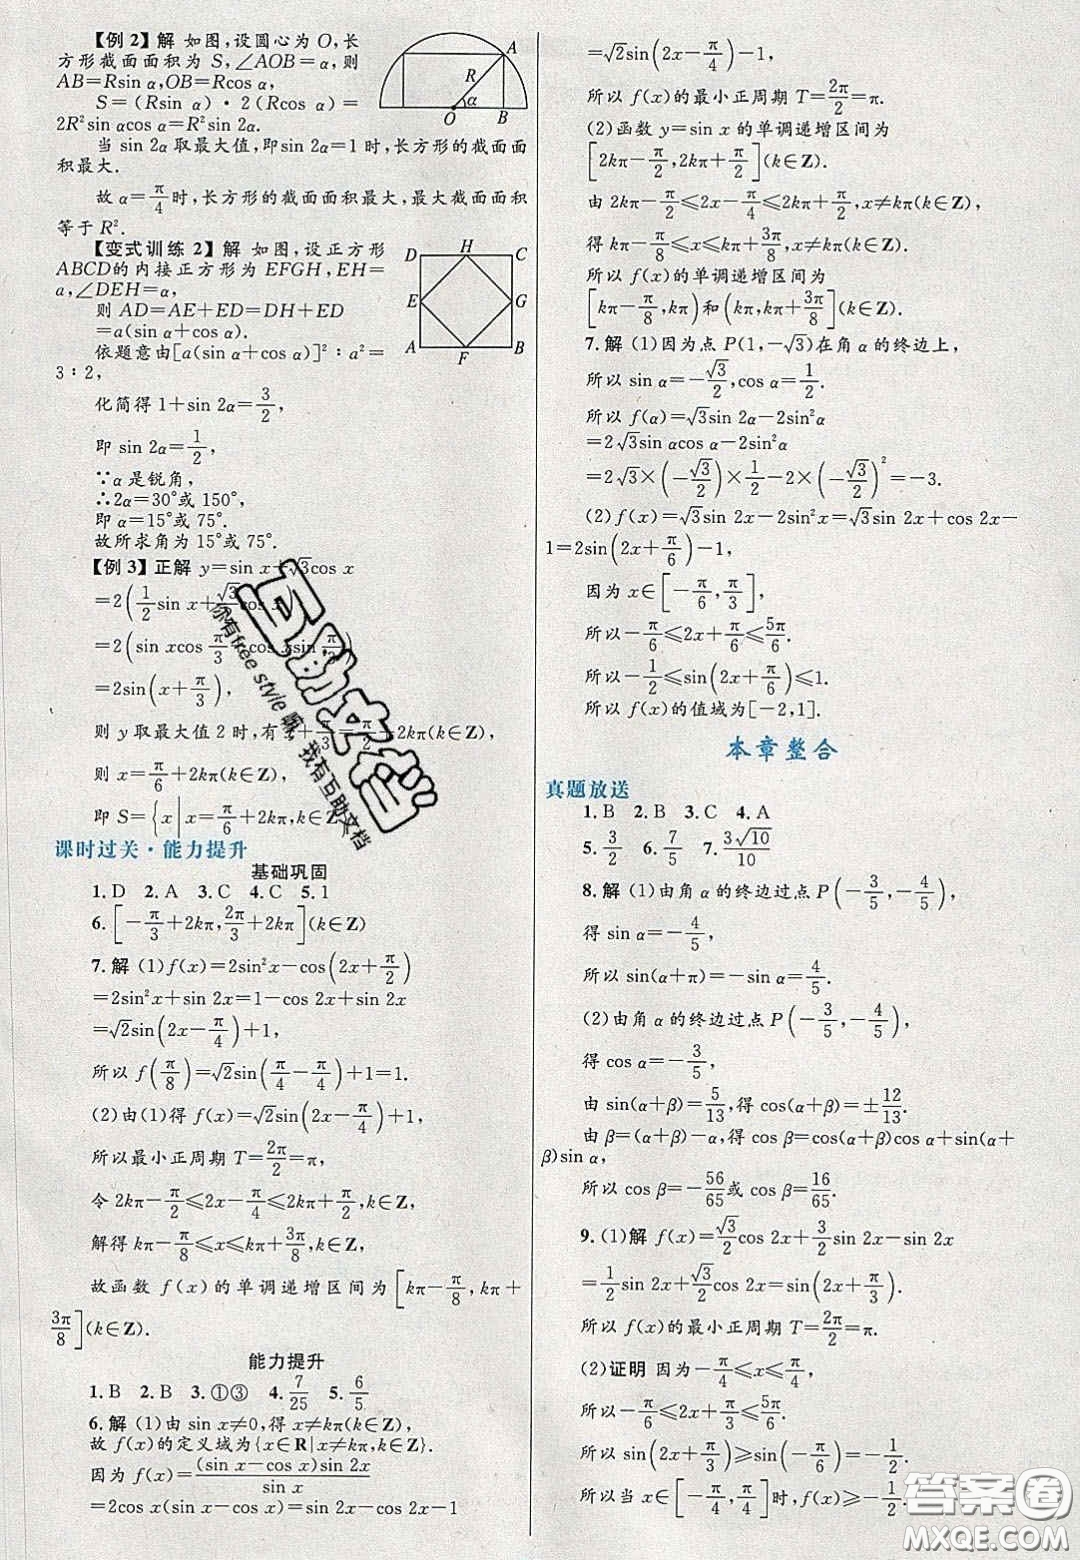 【例2】解 如图,设圆心为O,长
方形截面面积为S,∠AOB=α,则
AB=Rsin α,OB=Rcos α,
S=(Rsin α)·2(Rcos α)=
2R²sin αcos α=R²sin 2α.
当 sin 2α 取最大值,即sin 2α=1时,长方形的截面面
积最大.
故 α=π/4时,长方形的截面面积最大,最大截面面积
等于R².
A
R
α
O
B
【变式训练2】解 如图,设正方形
ABCD的内接正方形为EFGH,EH=
a,∠DEH=α,
则 AD=AE+ED=DH+ED
=a(sin α+cos α).
依题意由[a(sin α+cos α)]²∶a²=
3∶2,
D H C
E G
A F B
化简得 1+sin 2α=3/2,
即 sin 2α=1/2,
∵α是锐角,
∴2α=30°或150°,
即 α=15°或75°.
故所求角为15°或75°.
【例3】正解 y=sin x+√3cos x
=2(1/2 sin x+√3/2 cos x)
=2(sin xcos π/3+cos xsin π/3)
=2sin(x+π/3),
则 y 取最大值2时,有x+π/3=π/2+2kπ(k∈Z),
则 x=π/6+2kπ(k∈Z),
即 S={x|x=π/6+2kπ,k∈Z}.
课时过关·能力提升
基础巩固
1.D 2.A 3.C 4.C 5.1
6.[-π/3+2kπ,2π/3+2kπ](k∈Z)
7.解 (1)f(x)=2sin²x-cos(2x+π/2)
=2sin²x+sin 2x=1-cos 2x+sin 2x
=√2sin(2x-π/4)+1,
所以 f(π/8)=√2sin(π/4-π/4)+1=1.
(2)由(1)得 f(x)=√2sin(2x-π/4)+1,
所以最小正周期 T=2π/2=π,
令 2kπ-π/2≤2x-π/4≤2kπ+π/2(k∈Z),
解得 kπ-π/8≤x≤kπ+3π/8(k∈Z),
故函数 f(x)的单调递增区间为[kπ-π/8,kπ+
3π/8](k∈Z).
能力提升
1.B 2.B 3.①③ 4.7/25 5.6/5
6.解 (1)由 sin x≠0,得 x≠kπ(k∈Z),
故 f(x)的定义域为{x∈R|x≠kπ,k∈Z}.
因为 f(x)=(sin x-cos x)sin 2x/sin x
=2cos x(sin x-cos x)=sin 2x-cos 2x-1
=√2sin(2x-π/4)-1,
所以 f(x)的最小正周期 T=2π/2=π.
(2)函数 y=sin x的单调递增区间为
[2kπ-π/2,2kπ+π/2](k∈Z).
由 2kπ-π/2≤2x-π/4≤2kπ+π/2,x≠kπ(k∈Z),
得 kπ-π/8≤x≤kπ+3π/8,x≠kπ(k∈Z).
所以 f(x)的单调递增区间为
[kπ-π/8,kπ)和(kπ,kπ+3π/8](k∈Z).
7.解 (1)因为点 P(1,-√3)在角α的终边上,
所以 sin α=-√3/2,cos α=1/2.
所以 f(α)=√3sin 2α-2sin²α
=2√3sin αcos α-2sin²α
=2√3×(-√3/2)×1/2-2×(-√3/2)²=-3.
(2)f(x)=√3sin 2x-2sin²x=√3sin 2x+cos 2x-
1=2sin(2x+π/6)-1,
因为 x∈[-π/6,π/3],
所以-π/6≤2x+π/6≤5π/6.
所以-1/2≤sin(2x+π/6)≤1.
所以 f(x)的值域为[-2,1].
本章整合
真题放送
1.B 2.B 3.C 4.A
5.3/2 6.7/5 7.3√10/10
8.解 (1)由角α的终边过点 P(-3/5,-4/5),
得 sin α=-4/5,
所以 sin(α+π)=-sin α=4/5.
(2)由角α的终边过点 P(-3/5,-4/5),
得 cos α=-3/5.
由 sin(α+β)=5/13,得 cos(α+β)=±12/13.
由 β=(α+β)-α,得 cos β=cos(α+β)cos α+sin(α+
β)sin α,
所以 cos β=-56/65或 cos β=16/65.
9.(1)解 f(x)=√3/2 cos 2x+3/2 sin 2x-sin 2x
=1/2 sin 2x+√3/2 cos 2x=sin(2x+π/3).
所以 f(x)的最小正周期 T=2π/2=π.
(2)证明 因为-π/4≤x≤π/4,
所以-π/6≤2x+π/3≤5π/6.
所以 sin(2x+π/3)≥sin(-π/6)=-1/2.
所以当 x∈[-π/4,π/4]时,f(x)≥-1/2.
互助文档
你有free style 嘛，我有互助文档
答案圈
MXQE.COM